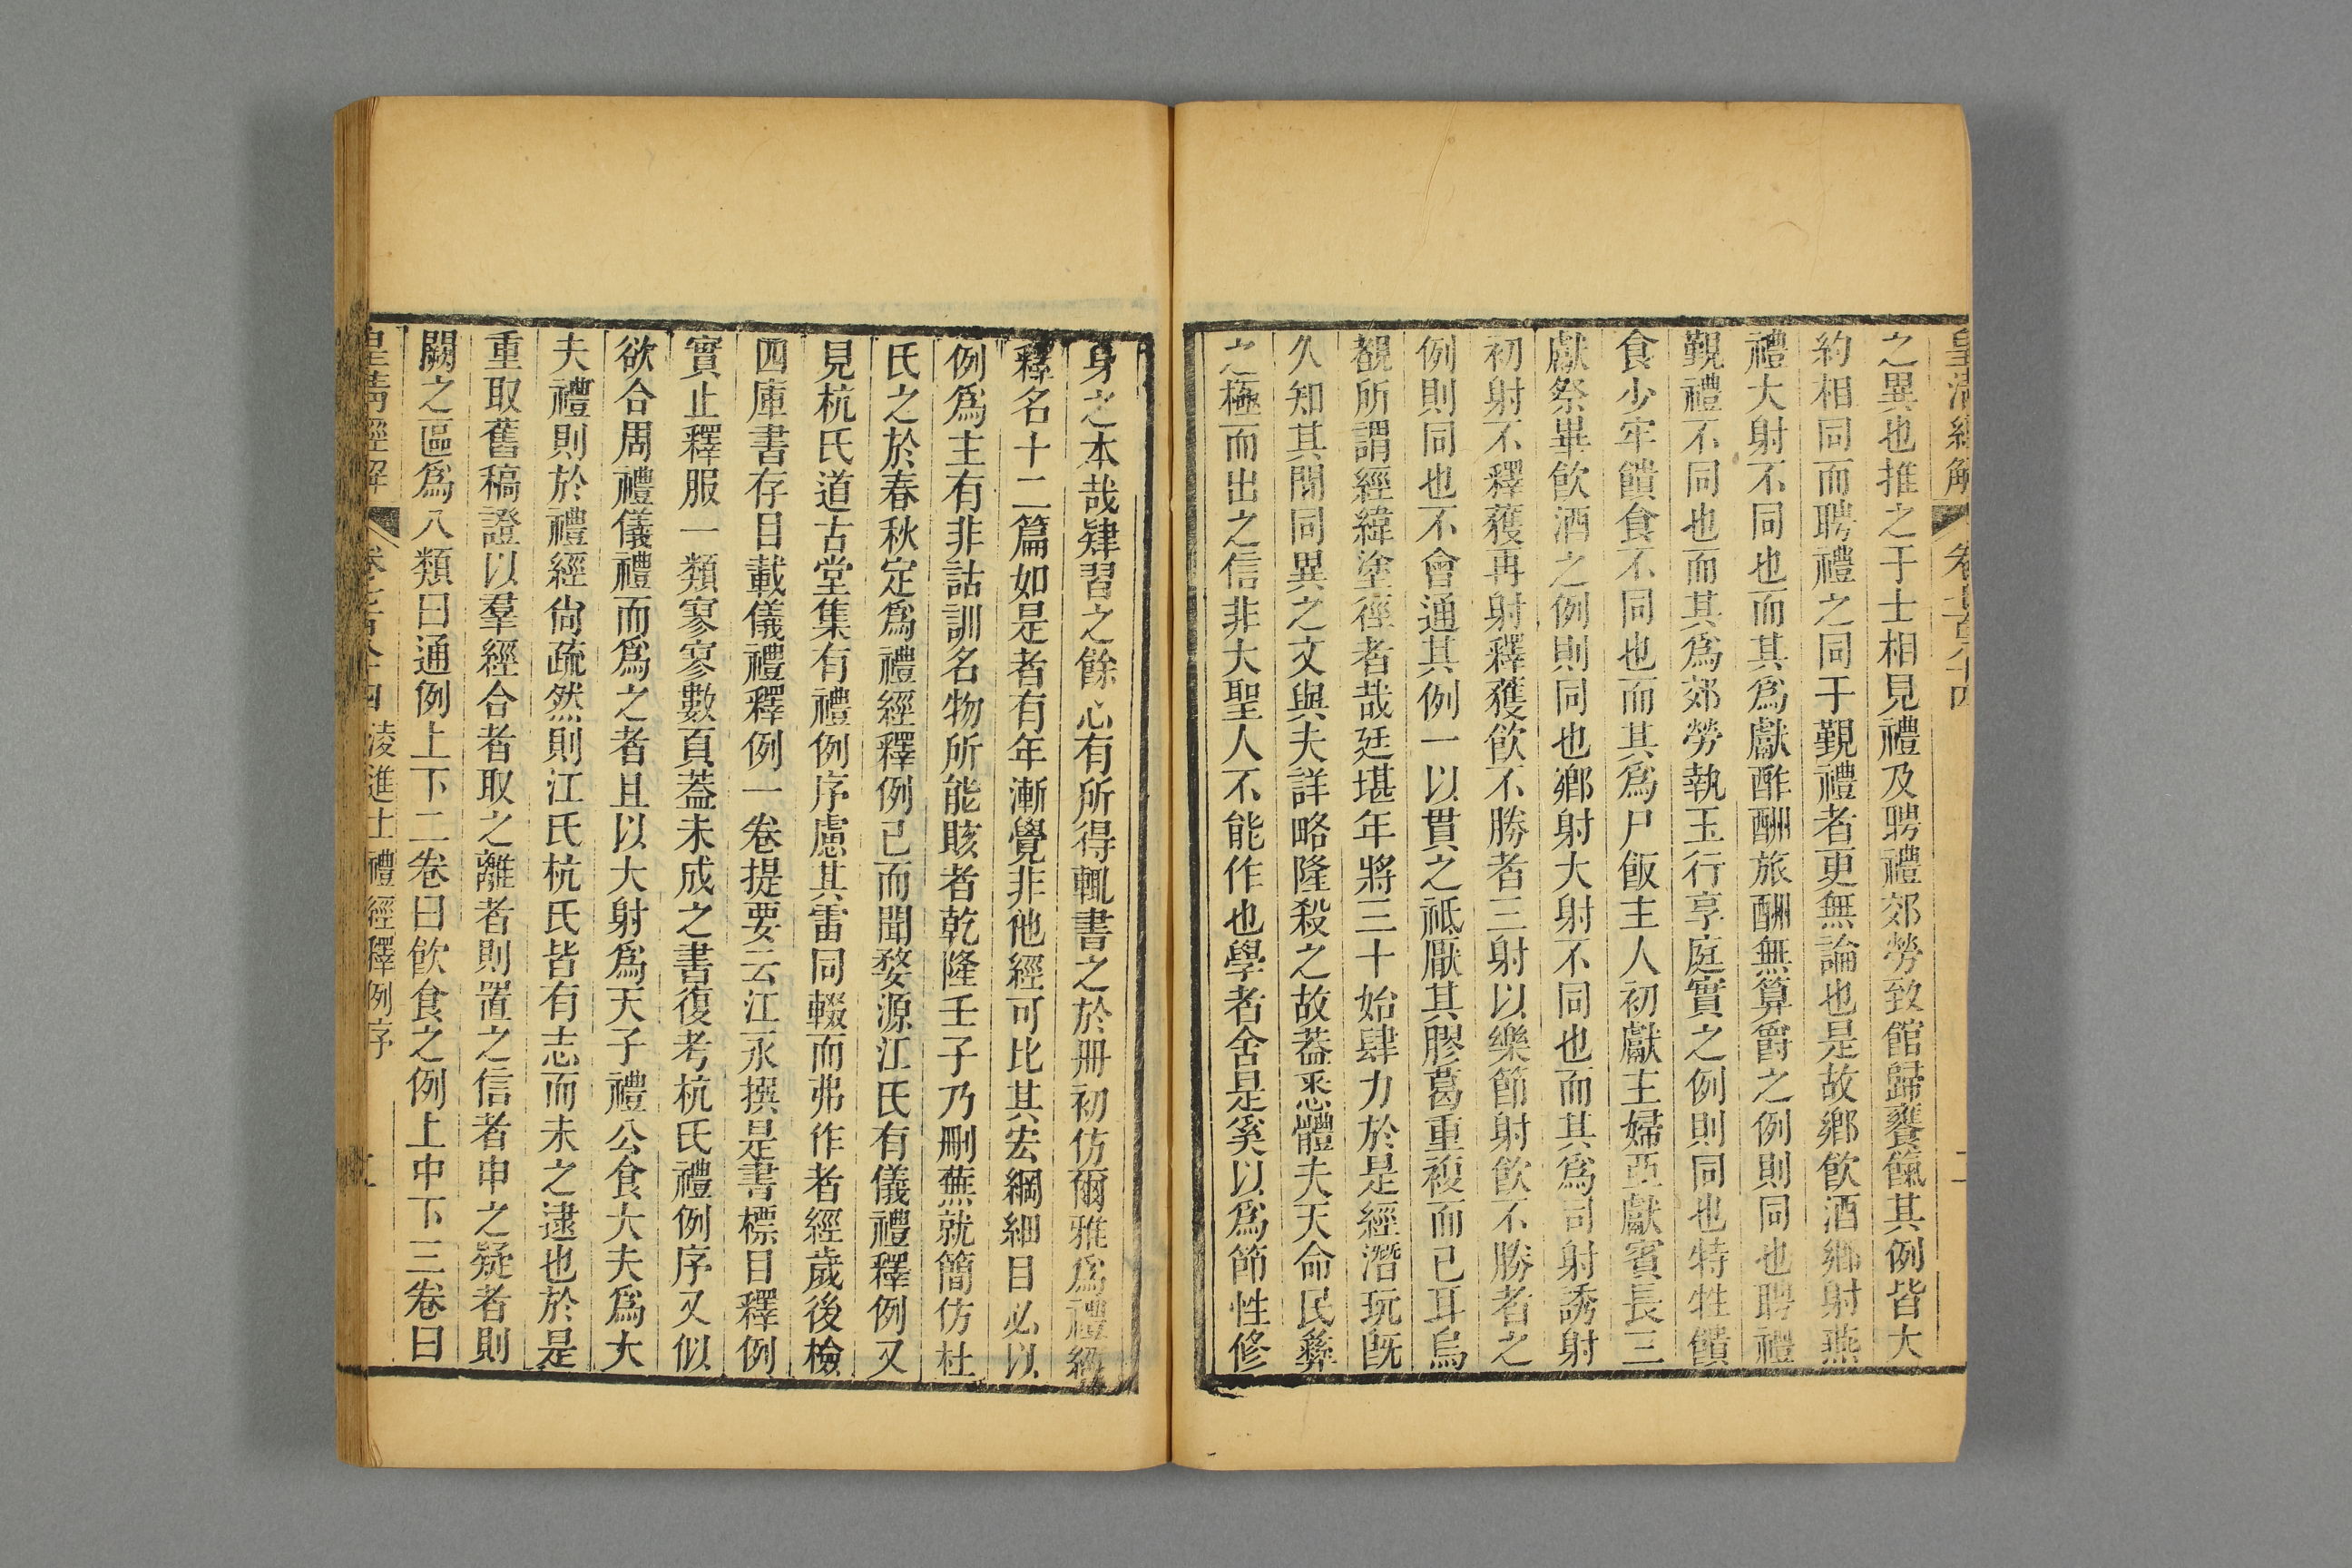 皇清經解
之異也推之于士相見禮及聘禮郊勞致館歸饔餼其例皆大
約相同而聘禮之同于覲禮者更無論也是故鄉飲酒鄉射燕
禮大射不同也而其爲獻酢酬旅酬無算爵之例則同也聘禮
覲禮不同也而其爲郊勞執玉行享庭實之例則同也特牲饋
食少牢饋食不同也而其爲尸飯主人初獻主婦亞獻賓長三
獻祭畢飲酒之例則同也鄉射大射不同也而其爲司射誘射
初射不釋獲再射釋獲飲不勝者三射以樂節射飲不勝者之
例則同也不會通其例一以貫之祇厭其膠葛重複而已耳烏
覩所謂經緯塗徑者哉廷堪年將三十始肆力於是經潛玩旣
久知其閒同異之文與夫詳略隆殺之故葢悉體夫天命民彝
之極而出之信非大聖人不能作也學者舍是奚以爲節性修
身之本哉肄習之餘心有所得輒書之於册初仿爾雅爲禮經
釋名十二篇如是者有年漸覺非他經可比其宏綱細目必以
例爲主有非詁訓名物所能賅者乾隆壬子乃刪蕪就簡仿杜
氏之於春秋定爲禮經釋例已而聞婺源江氏有儀禮釋例又
見杭氏道古堂集有禮例序慮其雷同輟而弗作者經歲後檢
四庫書存目載儀禮釋例一卷提要云江永撰是書標目釋例
實止釋服一類寥寥數頁葢未成之書復考杭氏禮例序又似
欲合周禮儀禮而爲之者且以大射爲天子禮公食大夫爲大
夫禮則於禮經尙疏然則江氏杭氏皆有志而未之逮也於是
重取舊稿證以羣經合者取之離者則置之信者申之疑者則
闕之區爲八類曰通例上下二卷曰飲食之例上中下三卷曰
皇清經解 卷七百八十四 淩進士禮經釋例序